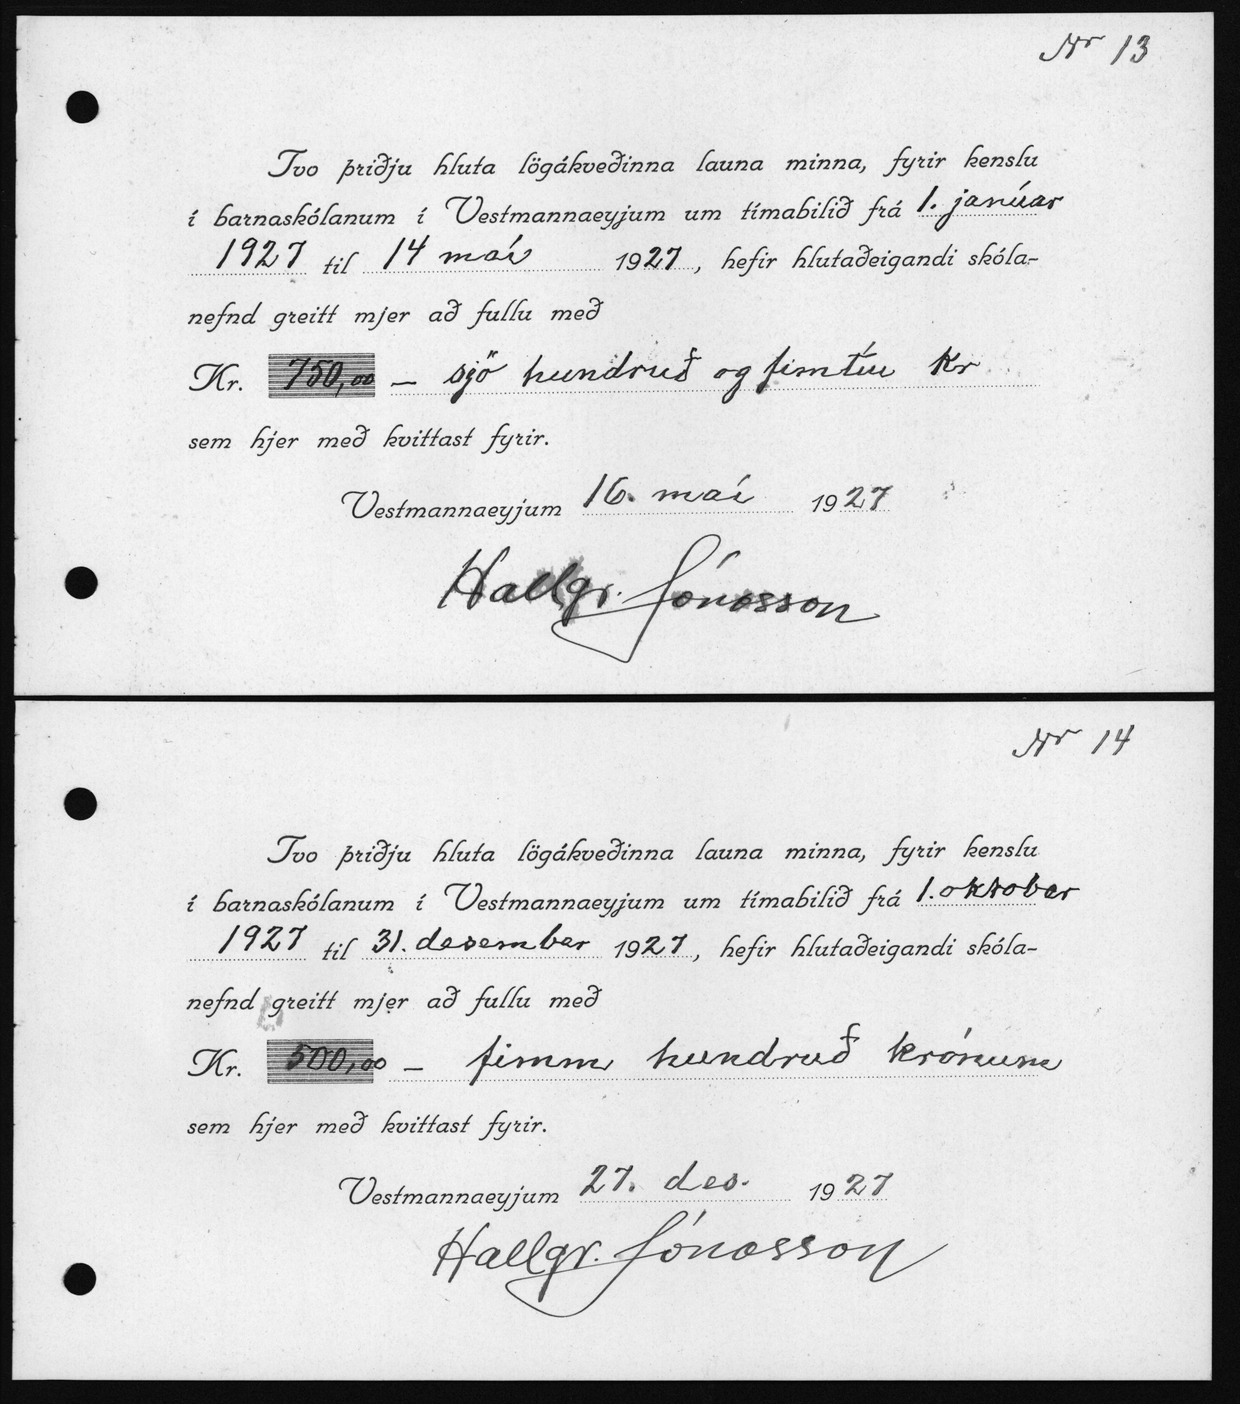 Nr 13
Tvo þriðju hluta lögákveðinna launa minna, fyrir kenslu
í barnaskólanum í Vestmannaeyjum um tímabilið frá 1. janúar
1927 til 14 maí 1927, hefir hlutaðeigandi skóla-
nefnd greitt mjer að fullu með
Kr. 750,00 – sjö hundruð og fimtíu kr
sem hjer með kvittast fyrir.
Vestmannaeyjum 16. maí 1927
Hallgr. Jónasson
Nr 14
Tvo þriðju hluta lögákveðinna launa minna, fyrir kenslu
í barnaskólanum í Vestmannaeyjum um tímabilið frá 1. oktober
1927 til 31. desember 1927, hefir hlutaðeigandi skóla-
nefnd greitt mjer að fullu með
Kr. 500,00 – fimm hundruð krónum
sem hjer með kvittast fyrir.
Vestmannaeyjum 27. des. 1927
Hallgr. Jónasson